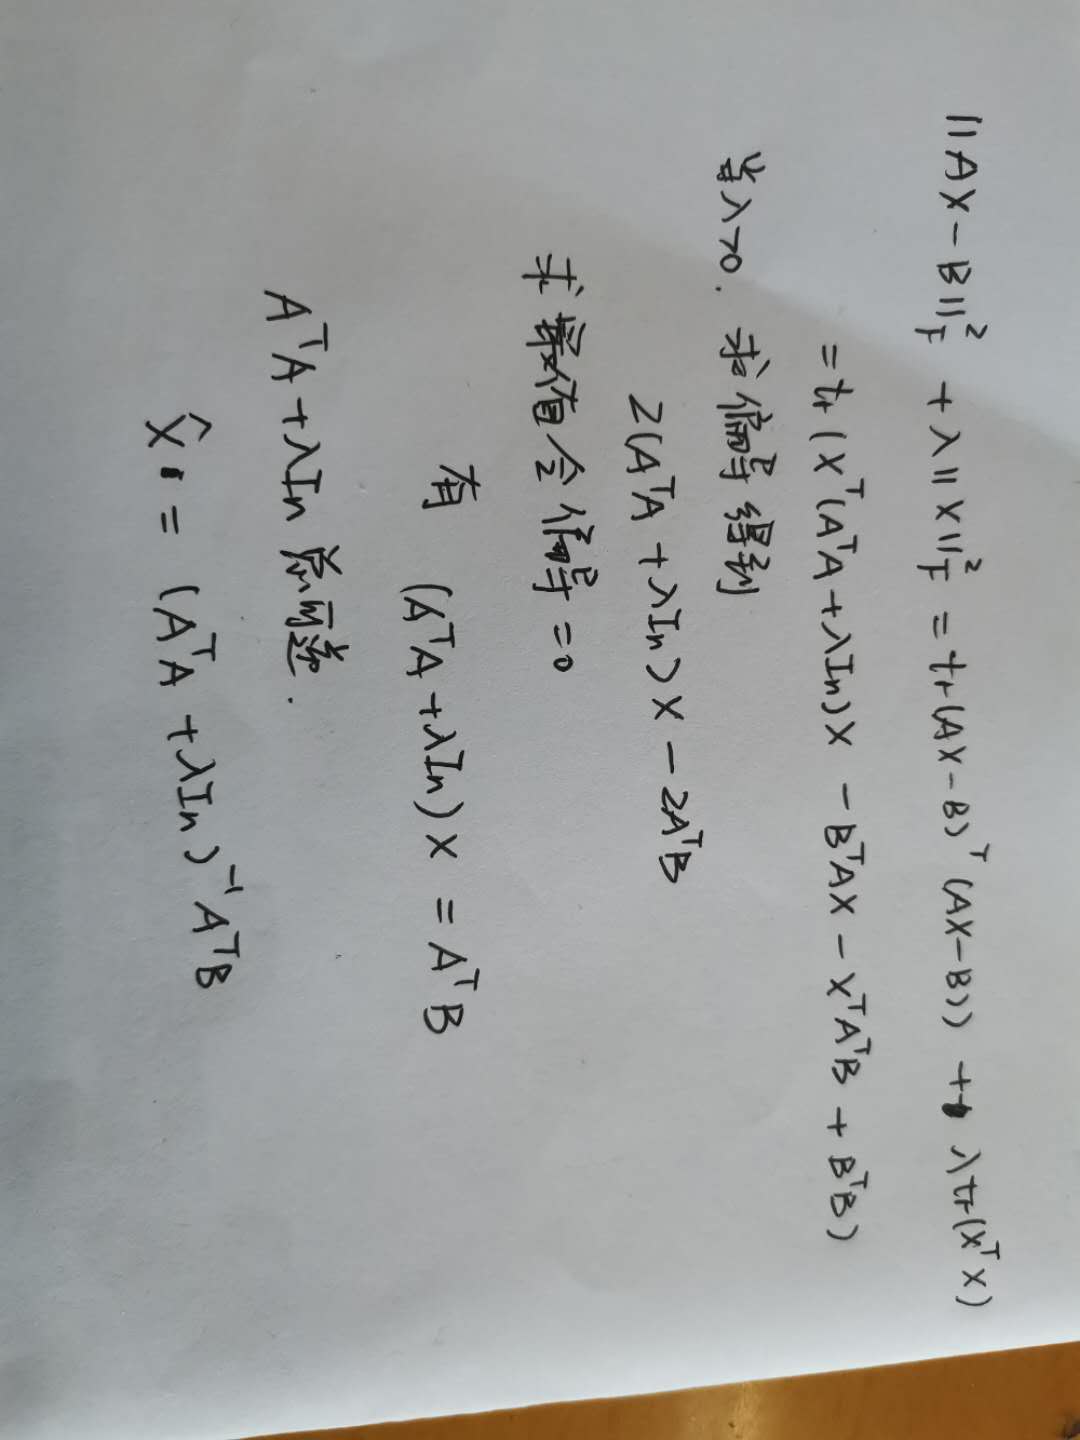 ||AX-B||_F^2 + λ||X||_F^2 = tr(AX-B)^T(AX-B)) + λtr(X^TX)
= tr(X^T(A^TA+λIn)X - B^TAX - X^TA^TB + B^TB)
当λ>0. 求偏导得到
2(A^TA+λIn)X - 2A^TB
求最值令偏导=0
有 (A^TA+λIn)X = A^TB
A^TA+λIn 可逆.
X̂ = (A^TA+λIn)^{-1}A^TB